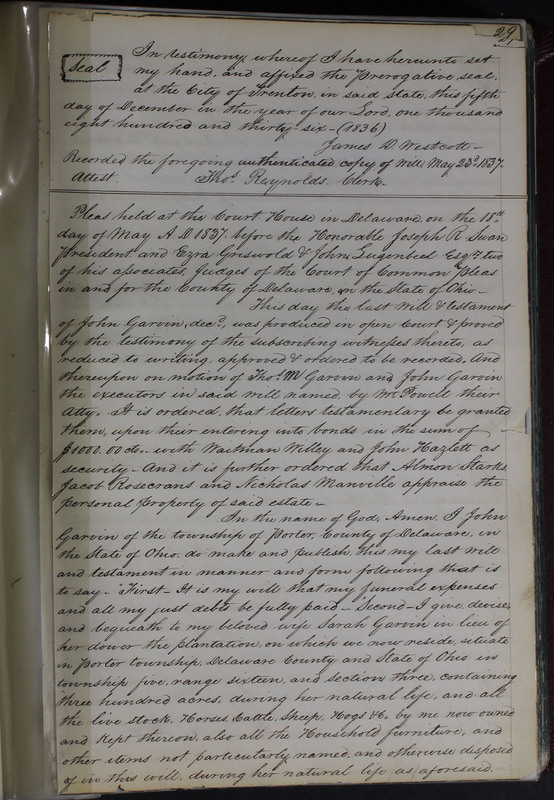 29
In testimony whereof I have hereunto set
Seal
my hand, and affixed the Prerogative seal,
at the City of Trenton, in said state, this fifth
day of December in the year of our Lord, one thousand
eight hundred and thirty-six - (1836)
James D. Westcott -
Recorded the foregoing authenticated copy of Will May 23d 1837.
Attest. Thos. Raynolds. Clerk.
Pleas held at the Court House in Delaware, on the 18th
day of May A.D 1837. before the Honorable Joseph R Swan
President and Ezra Griswold & John Lugenbeel Esqrs. two
of his associates, Judges of the Court of Common Pleas
in and for the County of Delaware, in the State of Ohio -
This day the last Will & testament
of John Garvin, decd., was produced in open Court & proved
by the testimony of the subscribing witnesses thereto, as
reduced to writing, approved & ordered to be recorded. And
thereupon on motion of Thos. M Garvin and John Garvin
the executors in said will named, by Mr. Powell their
Atty. It is ordered, that letters testamentary be granted
them, upon their entering into bonds in the sum of
$1000.00 do.. with Waitman Willey and John Hazlett as
security - And it is further ordered that Almon Starks
Jacob Rosecrans and Nicholas Manville appraise the
personal property of said estate -
In the name of God, Amen, I John
Garvin of the township of Porter, County of Delaware, in
the State of Ohio, do make and publish this my last will
and testament in manner and form following that is
to say - First - It is my will that my funeral expenses
and all my just debts be fully paid - Second - I give, devise,
and bequeath to my beloved wife Sarah Garvin in lieu of
her dower the plantation, on which we now reside, situate
in Porter township, Delaware County and State of Ohio in
township five, range sixteen, and section three, containing
three hundred acres, during her natural life, and all
the live stock, Horses, Cattle, Sheep, Hogs &c. by me now owned
and kept thereon, also all the Household furniture, and
other items not particularly named, and otherwise disposed
of in this will, during her natural life as aforesaid.